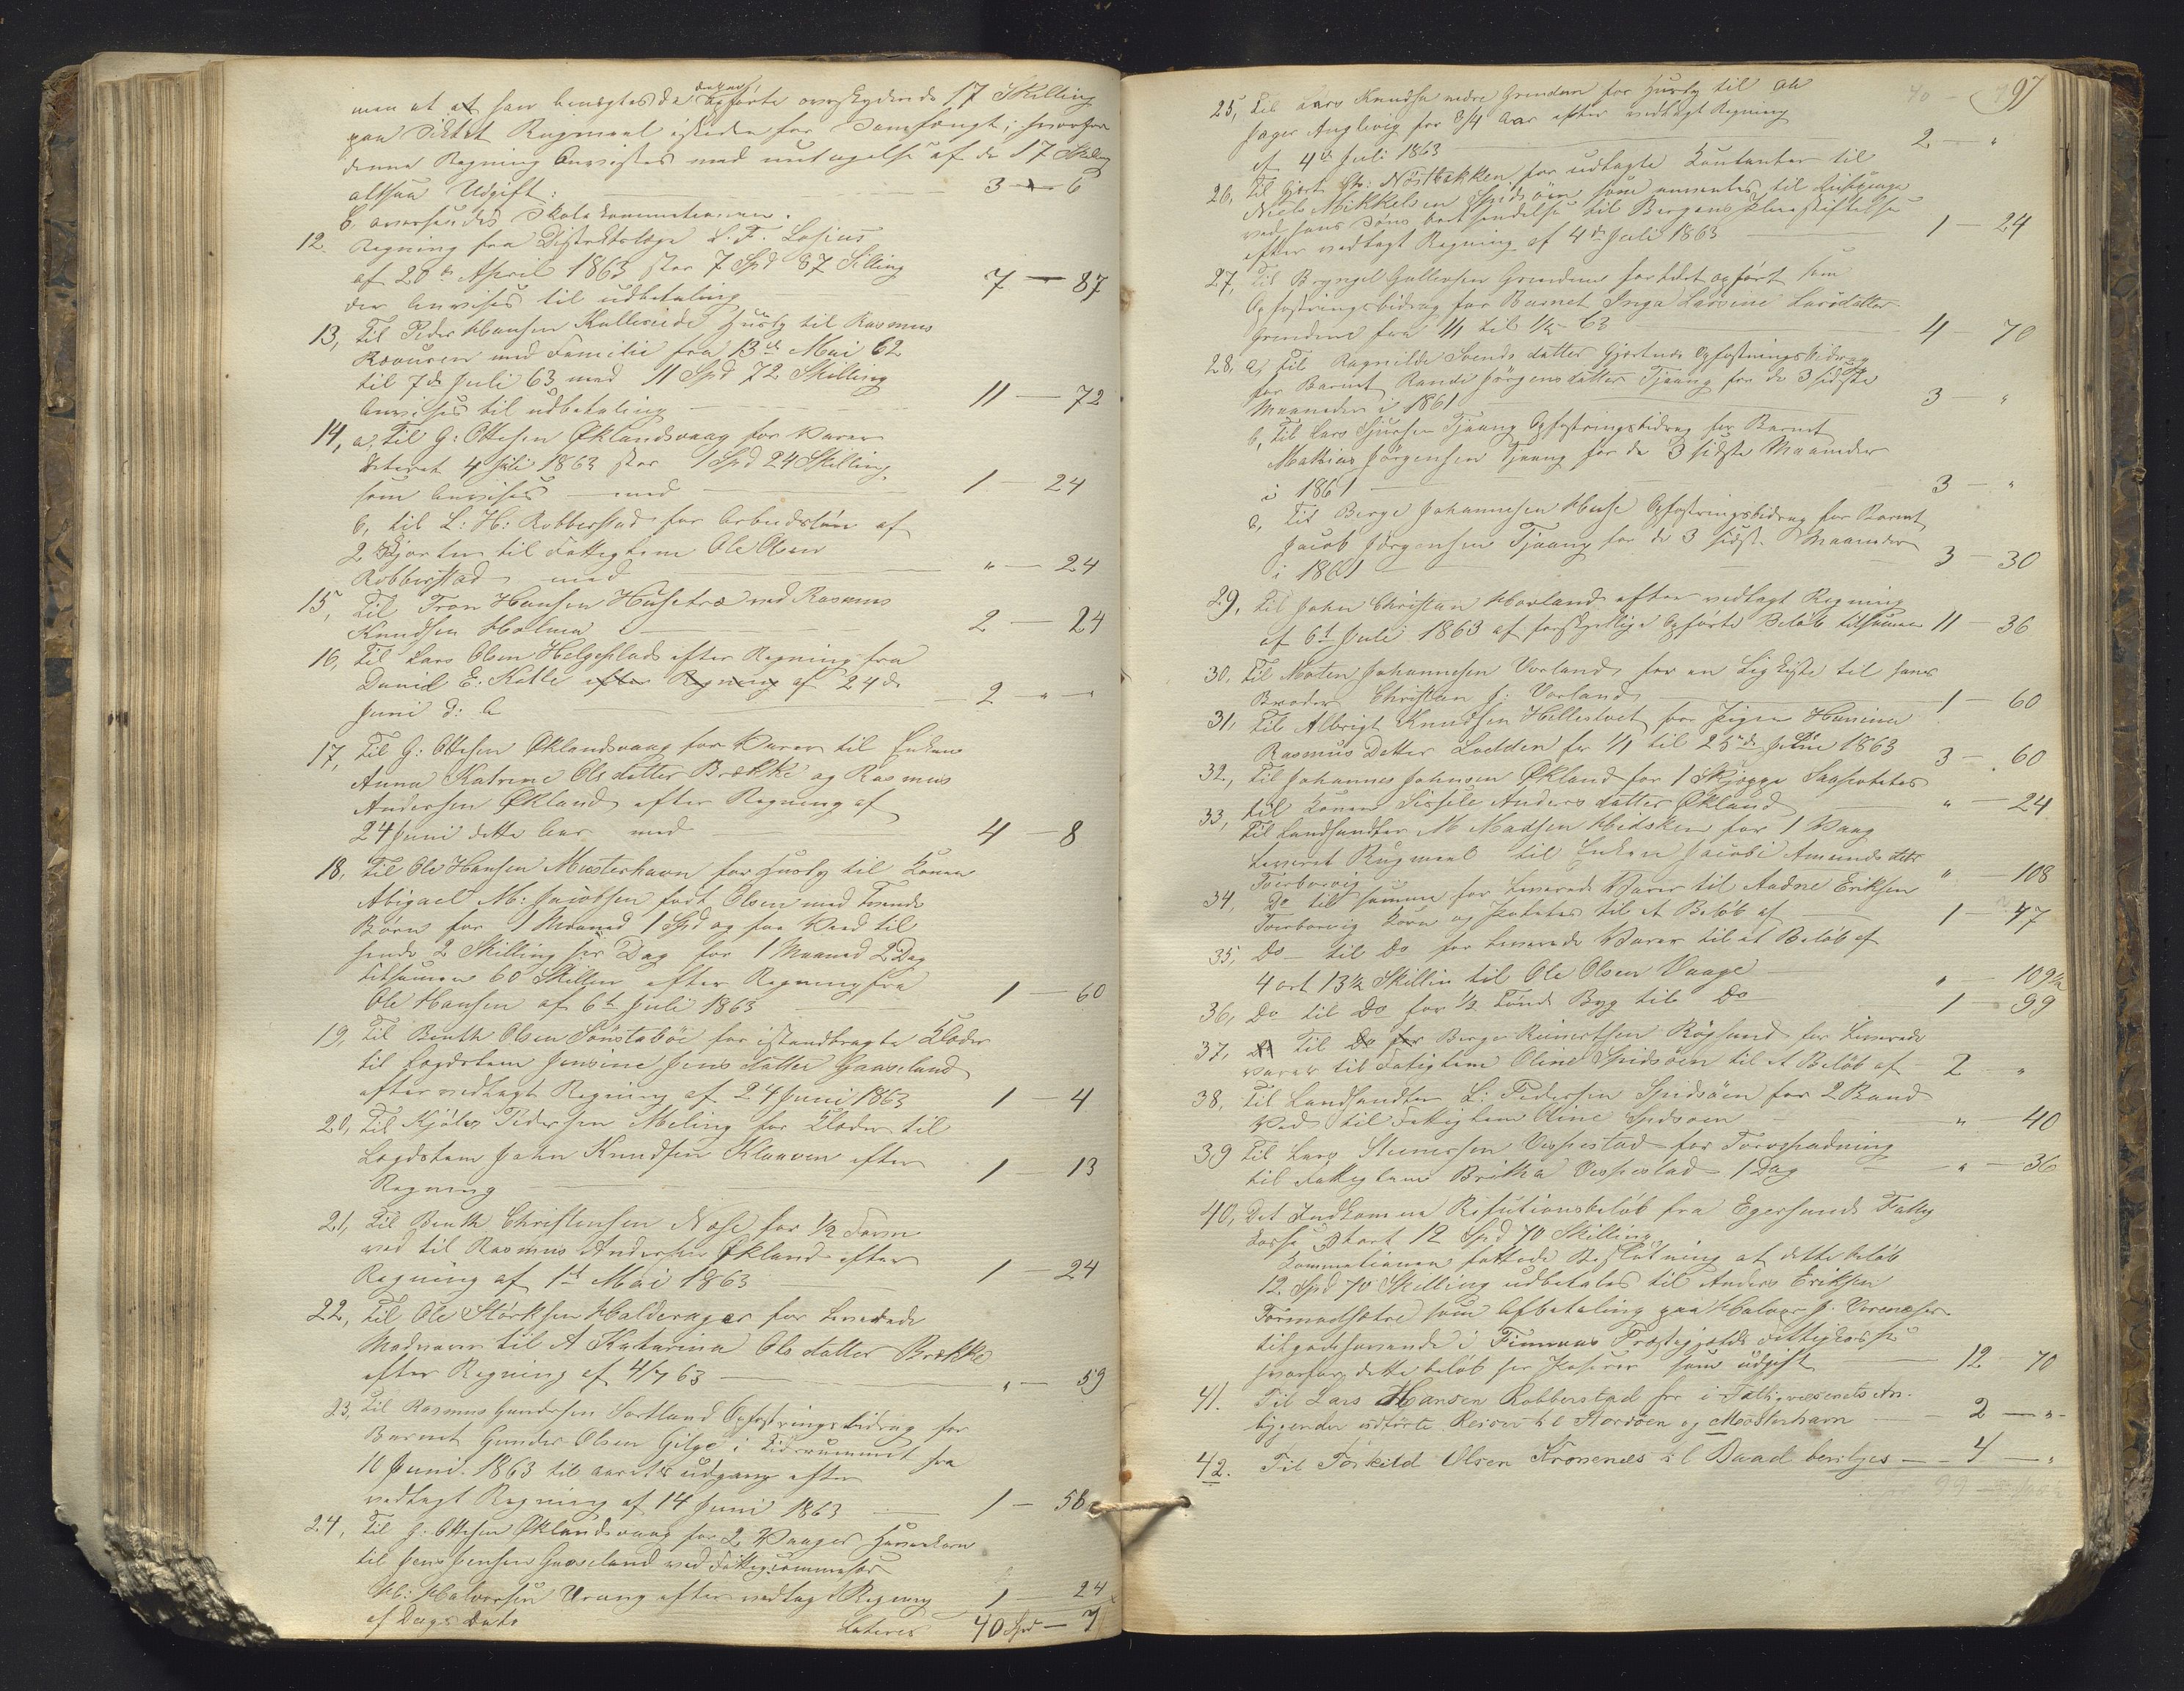 men at at han benægtede de opførte overskydende 17 Skilling
paa Sigtet Rugmeel istedet for Samfængt; hvorfor
denne Regning Anvistes med untagelse af de 17 Skilling
altsaa Udgift: 3 — 6
b, oversendes Skolekommitionen.
12. Regning fra Distriktslæge L. F. Losius
af 20de April 1863 stor 7 Spd 87 Skilling
der Anvises til udbetaling 7 — 87
13, Til Peder Hansen Kallevig Husly til Rasmus
med Familie fra 13de Mai 62
til 7de Juli 63 med 11 Spd 72 Skilling
Anvises til udbetaling 11 — 72
14, a, Til G: Ottesen Øklandsvaag for Varer
dateret 4 Juli 1863 stor 1 Spd 24 Skilling
som Anvises med 1 — 24
b, til L: H: Robberstad for Arbeidsløn af
2 Skjorter til Fattiglem Ole Olsen
Robberstad med " — 24
15, Til Tron Hansen Husetræ ved Rasmus
Knudsen Holmen 2 — 24
16, Til Lars Olsen Helgeplads efter Regning fra
Daniel E: Kalle efter Regning af 24de
Juni d: A 2 — "
17, Til G: Ottesen Øklandsvaag for Varer til Enken
Anna Katrine Olsdatter Brække og Rasmus
Andersen Økland efter Regning af
24 Juni dette Aar med 4 — 8
18, Til Ole Hansen Mosterhavn for Husly til Konen
Abigael M: Jacobsen født Olsen med Tvende
Børn for 1 Maaned 1 Spd og for Ved til
hende 2 Skilling per Dag for 1 Maaned 2 Dag
tilsammen 60 Skilling efter Regning fra
Ole Hansen af 6te Juli 1863 1 — 60
19, Til Benth Olsen Sønstabøe for istandbragte Klæder
til Lægdslem Jensine Jensdatter Gaaseland
efter vedlagt Regning af 24 Juni 1863 1 — 4
20, Til Kjøler Pedersen Meling for Klæder til
Lægdslem John Knudsen Klaaven efter
Regning 1 — 13
21, Til Benth Christensen Næse for 1/2 Favn
ved til Rasmus Andersen Økland efter
Regning af 1st Mai 1863 1 — 24
22, Til Ole Størksen Halderager for Leverede
Madvarer til A Katarina Olsdatter Brække
efter Regning af 4/7 63 " — 59
23, Til Rasmus Gundersen Sortland Opfostringsbidrag for
Barnet Gunder Olsen Gilge i Tidsrummet fra
10 Juni 1863 til aarets udgang efter
vedlagt Regning af 14 Juni 1863 1 — 58
24, Til G: Ottesen Øklandsvaag for 2 Vaager Havrekorn
til Jens Jensen Gaaseland ved Fattigcommisær
H: Halvorsen Urang efter vedlagt Regning
af Dags Dato 1 — 24
Lateres 40 Spd — 7
97
25, Til Lars Knudsen nedre Grindem for Husly til
for 3/4 Aar efter vedlagt Regning
af 4de Juli 1863 2 — "
26, Til Gjert Nøstbakken for udlagte Kontanter til
Niels Mikkelsen Spidsøen som anvendtes til
ved hans Søns bortsendelse til Bergens Pleiestiftelse
efter vedlagt Regning af 4de Juli 1863 1 — 24
27, Til Bryngel Gullersen Grindem for det opført som
Opfostringsbidrag for Barnet Inga Larsine Larsdatter
Grindem fra 1/1 til 63 4 — 70
28, a, Til Ragnilde Svendsdatter Gjertnes Opfostringsbidrag
for Barnet Randi Jørgensdatter Tjaang for de 3 sidste
Maaneder i 1861 3 — "
b, Til Lars Sjursen Tjaang Opfostringsbidrag for Barnet
Mathias Jørgensen Tjaang for de 3 sidste Maaneder
i 1861 3 — "
c, Til Berge Johannesen Huse Opfostringsbidrag for Barnet
Jacob Jørgensen Tjaang for de 3 sidste Maaneder
i 1861 3 — 30
29, Til John Christian Hovland efter vedlagt Regning
af 6te Juli 1863 af forskjellige Opførte Beløb tilsammen 11 — 36
30, Til Morten Johannesen Vorland, for en Ligkiste til hans
Broder Christian J: Vorland 1 — 60
31, Til Albrigt Knudsen Hellestvet for Pigen Hanina
Rasmus Datter Lodden for 1/1 til 25de Juni 1863 3 — 60
32, Til Johannes Johnsen Økland for 1 Skjeppe Sæpoteter
til Konen Sissele Andersdatter Økland " — 24
33, Til Landhandler M Madsen Hidsken for 1 Vaag
Leveret Rugmeel til Enken Jacobi Amundsdtr
Toerborvig " 108
34, Do til samme for Leverede Varer til Aadne Eriksen
Toerborvig Korn og Poteter til et Beløb af 1 — 47
35, Do til Do for Leverede Varer til et Beløb af
4 ort 13 1/2 Skillin til Ole Olsen Vaage " — 109 1/2
36, Do til Do for 1/2 Tønde Byg til Do 1 — 99
37, Til Do for Berge Reinertsen Røgsund for Leverede
varer til Fatiglem Oline Spidsøen til et Beløb af 2 — "
38, Til Landhandler L: Pedersen Spidsøen for 2 Baand
Ved til Fattiglem Oline Spidsøen " — 40
39 Til Lars Steenersen Vespestad for Torvspadning
til Fattiglem Britha Vespestad 1 Dag " — 36
40, Det Indkomne Refutionsbeløb fra Egersunds Fattig
kasse Stort 12 Spd 70 Skilling
Kommitionen fattede Beslutning at dette beløb
12 Spd 70 Skilling udbetales til Anders Eriksen
Tormodsætre som Afbetaling paa Halvor J: Vornæses
tilgodehavende i Finnaas Præstegjælds Fattigkasse
hvorfor dette beløb her Posterer som udgift 12 — 70
41. Til Lars Hansen Robberstad for i Fattigvæsenets An-
liggender udførte Reiser til Stordøen og Mosterhavn 2 — "
42. Til Torkild Olsen Kronenæs til Baad beviljes 4 — "